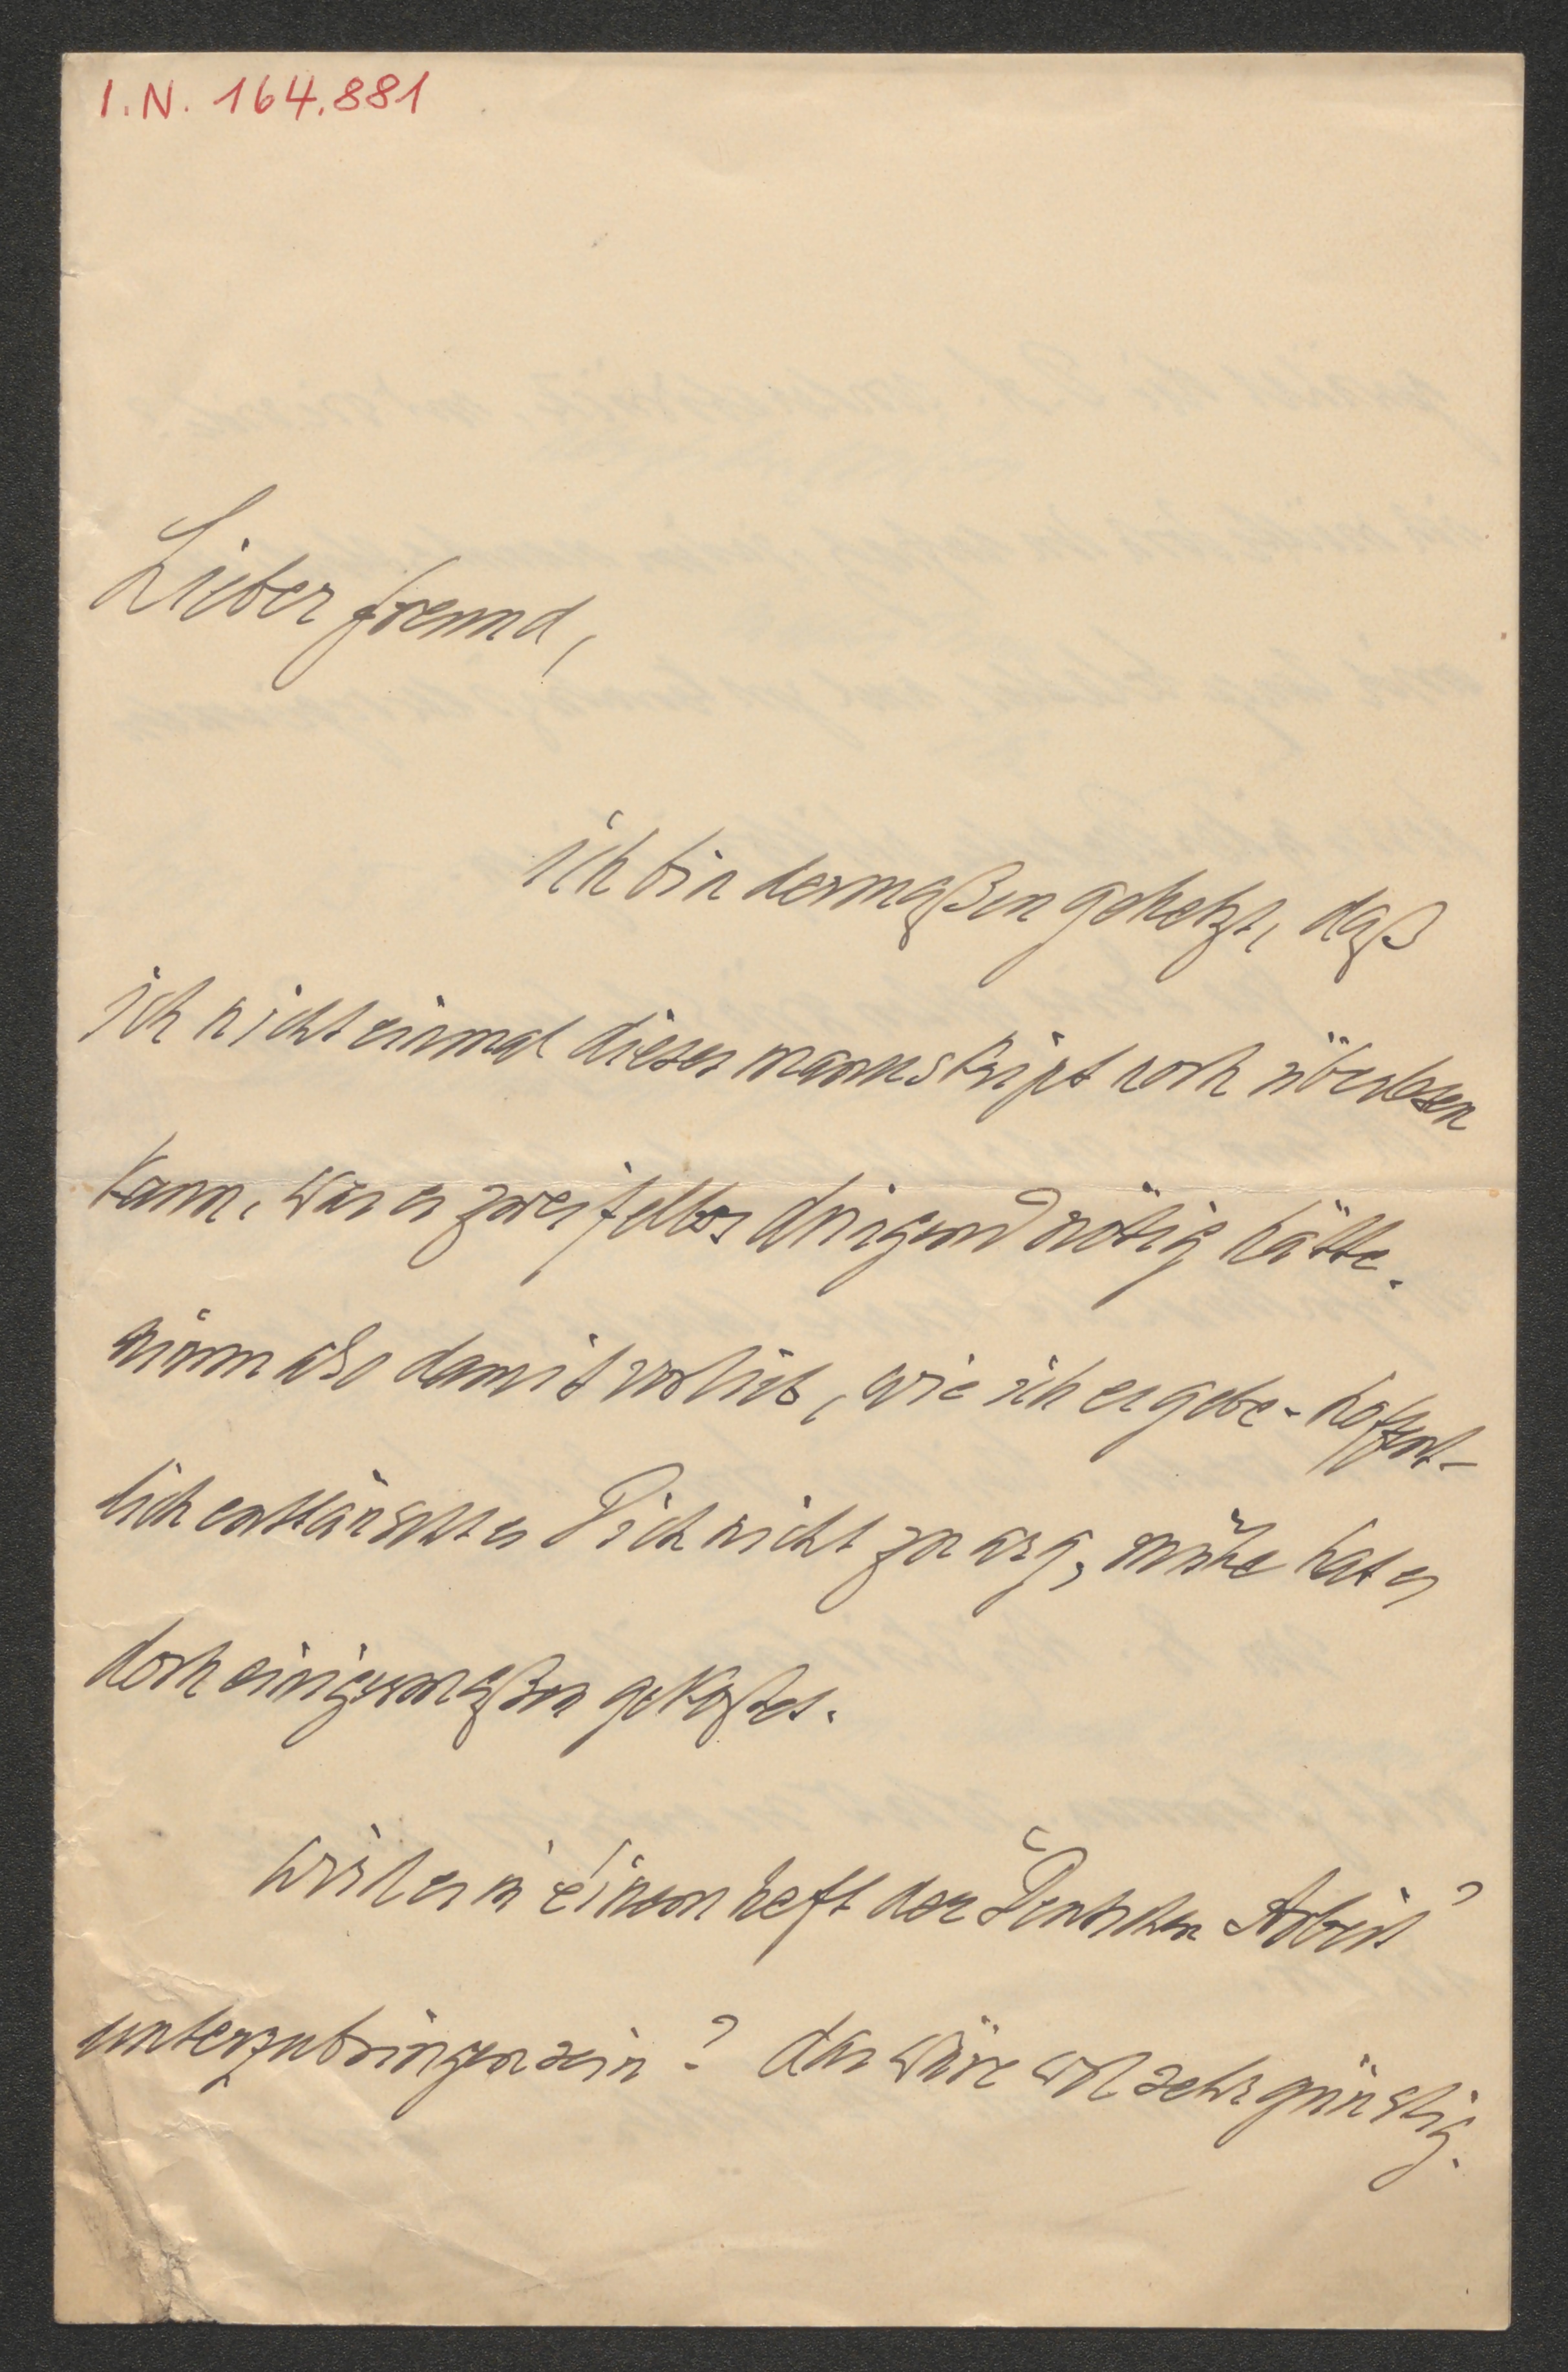 I.N. 164.881
Lieber freund,
ich bin dermaßen gehetzt, daß
ich nicht einmal dieses manuskript noch überlesen
kann, was es zweifellos dringend nötig hätte.
nimm also damit vorlieb, wie ich es gebe - hoffent-
lich enttäuscht es Dich nicht zu arg, mühe hat es
doch einigermaßen gekostet.
wird es in einem heft der Deutschen Arbeit
unterzubringen sein? das wäre wol sehr günstig.